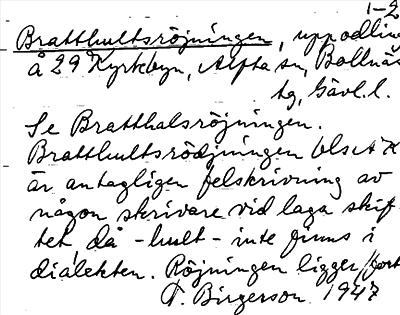 1-2
Bratthultsröjningen, uppodlin
å 29 Kyrkbyn, Alfta sn, Bollnäs
tg, Gävl. l.
Se Bratthalsröjningen.
Bratthultsrödjningen LSA K
är antagligen felskrivning av
någon skrivare vid laga skif-
tet, då -hult- inte finns i
dialekten. Röjningen ligger
P. Birgerson 1947